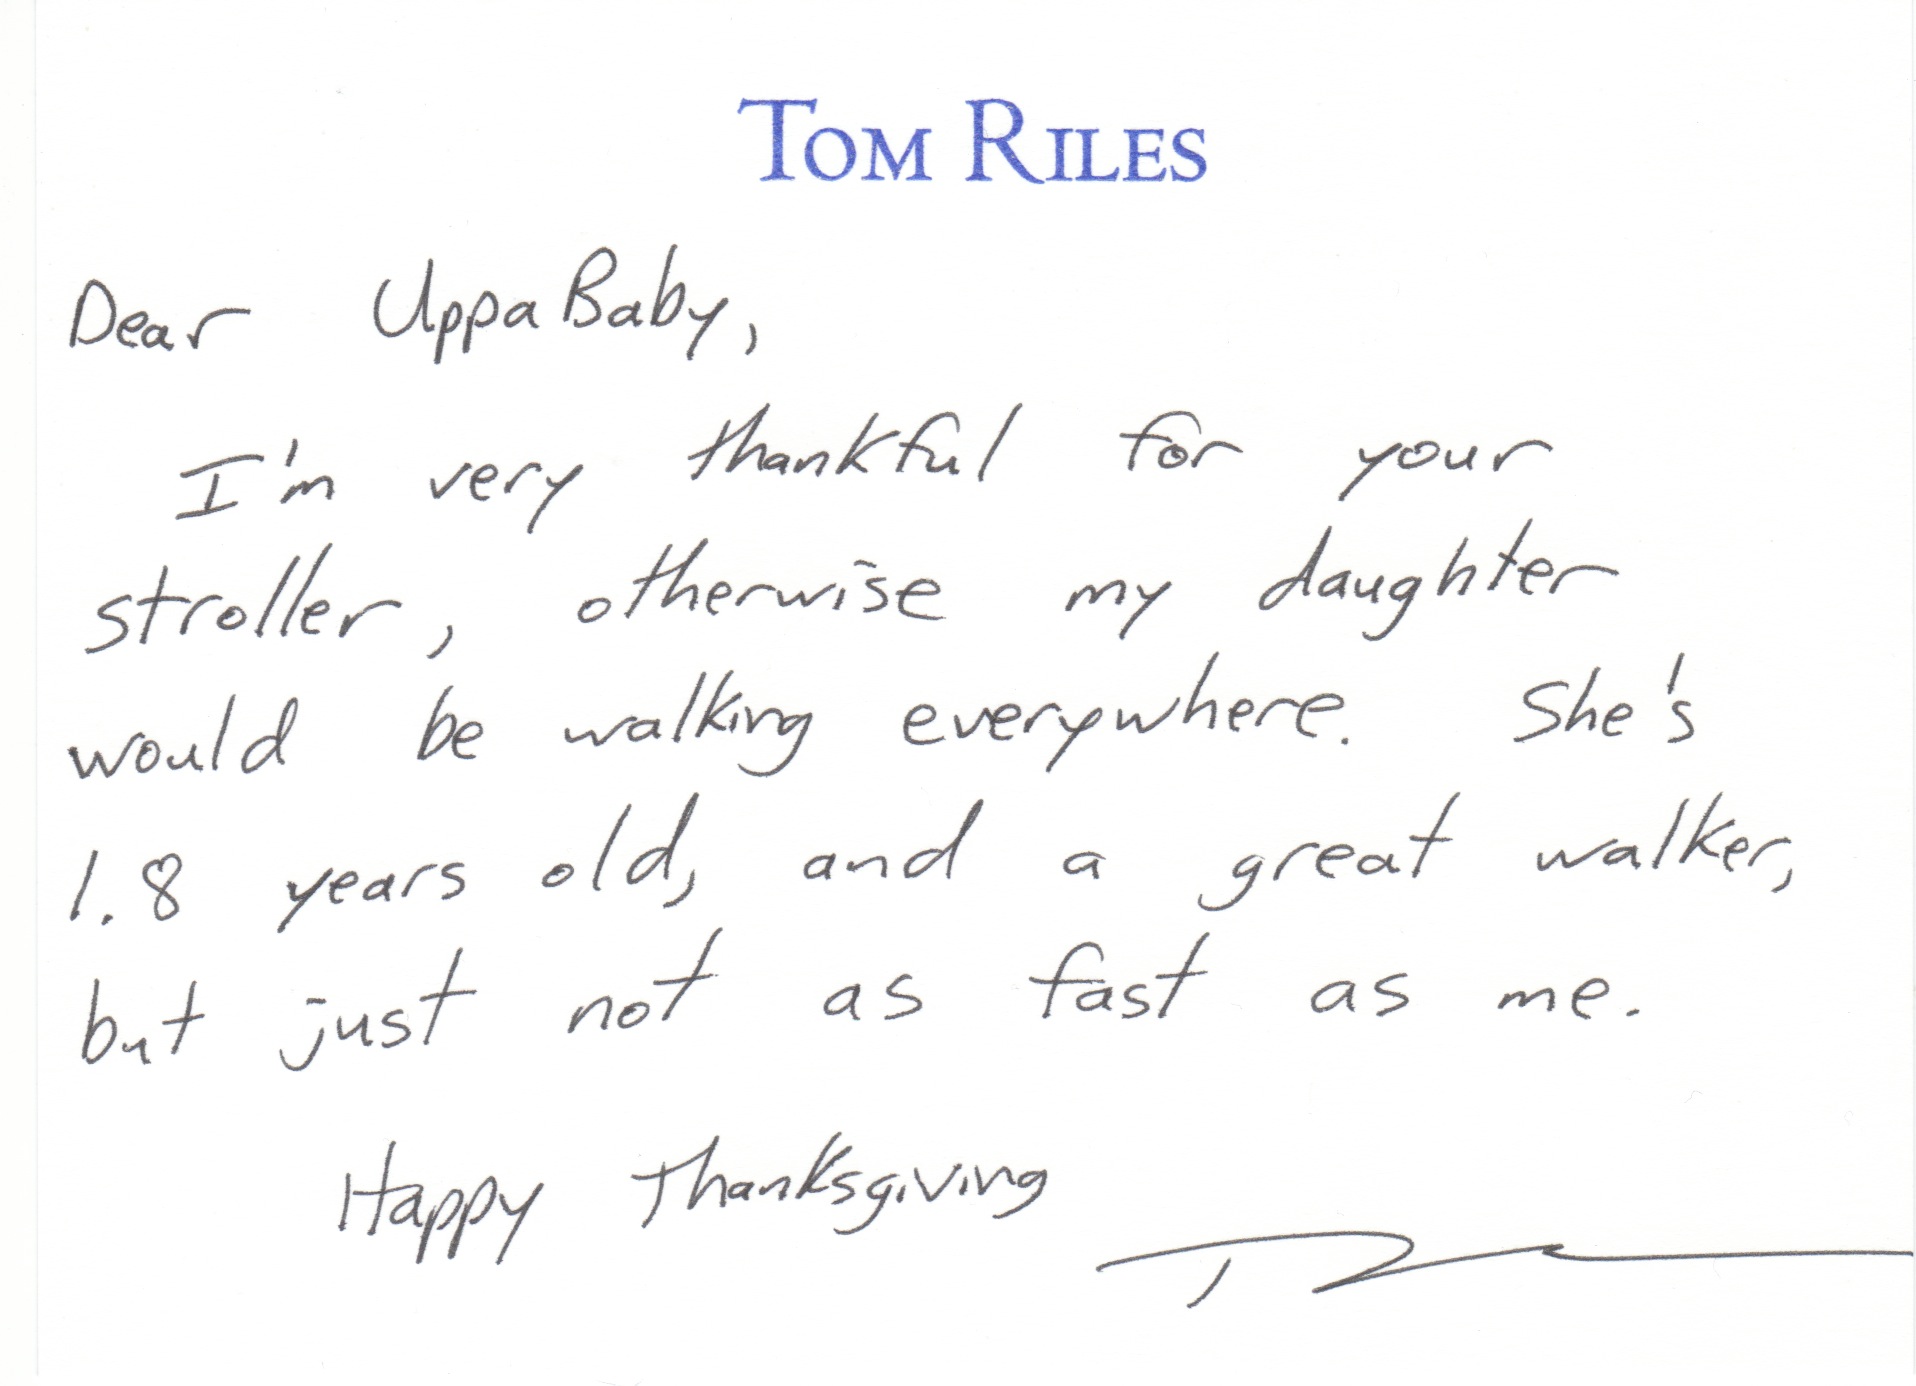 TOM RILES
Dear UppaBaby,
I'm very thankful for your
stroller, otherwise my daughter
would be walking everywhere. She's
1.8 years old, and a great walker,
but just not as fast as me.
Happy Thanksgiving